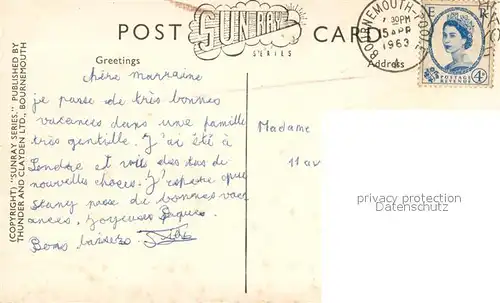 POST CARD
SUNRAY
SERIES
Greetings
Address
BOURNEMOUTH-POOLE
7 30PM
15 APR
1963
E R
POSTAGE
REVENUE
4D
(COPYRIGHT) "SUNRAY SERIES." PUBLISHED BY
THUNDER AND CLAYDEN LTD., BOURNEMOUTH
chère marraine
je passe de très bonnes
vacances dans une famille
très gentille. J'ai été à
Londre et voit des tas de
nouvelles choses. J'espère que
stany passe de bonnes vac
ances. Joyeuses Paques.
Bons baisers
Madame
11 av
privacy protection
Datenschutz